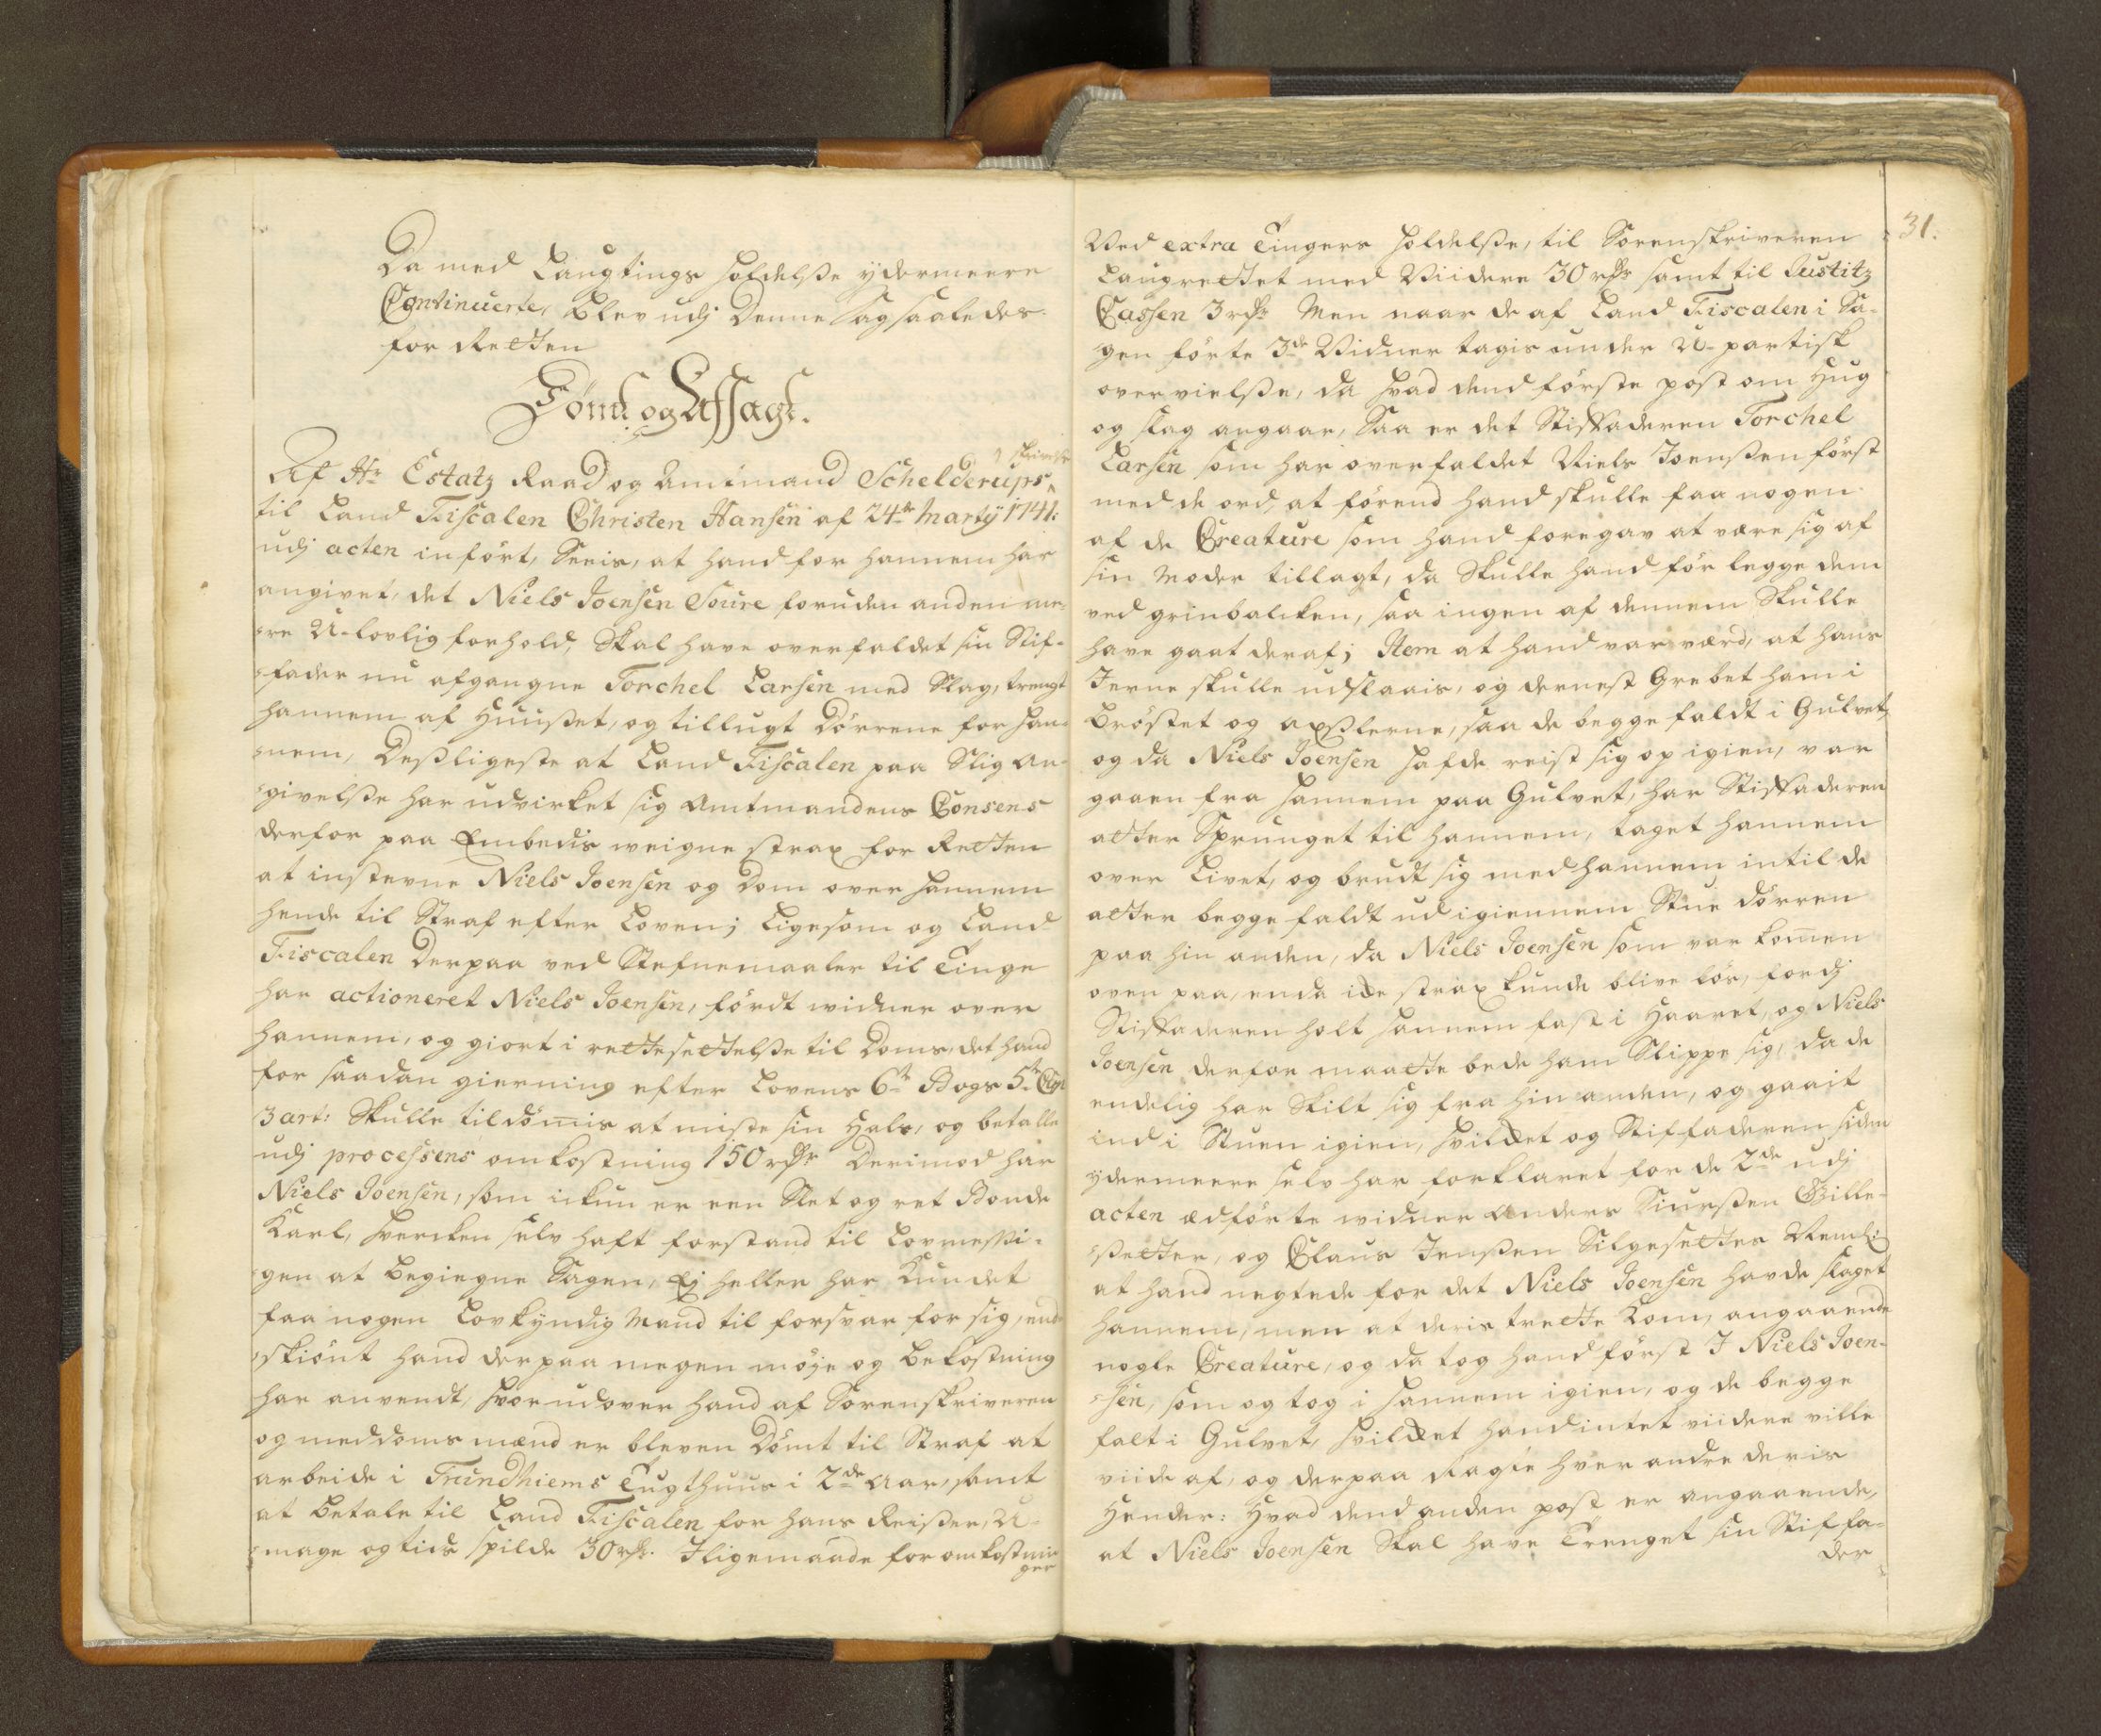 Da med Laugtings holdelße ydermeere
Continuerte, blev udj Denne Sag saaledes
for Retten
Dömt og Afsagt.
skrivelse
Af Hr Estatz Raad og Amtmand Schelderups
til Land Fiscalen Christen Hansen af 24de Martÿ 1741:
udj acten indfört, Seeis, at hand for hannem har
angivet, det Niels Joensen Soure foruden anden mee-
re U-lovlig forhold, Skal have overfaldet sin Stif-
fader nu afgangne Torchel Larsen med Slag, trengt
hannem af Huußet, og tillugt Dörrene for han-
nem, Deßligeste at Land Fiscalen paa Slig An-
givelße har udvirket sig Amtmandens Consens
derfor paa Embedis weigne strax for Retten
at instevne Niels Joensen og Dom over hannem
hende til Straf efter Loven; Ligesom og Land
Fiscalen Derpaa ved Stefnemaaler til Tinge
har actioneret Niels Joensen, fördt widner over
hannem, og giort i rettesettelße til Doms, det hand
for saadan gierning efter Lovens 6te Bogs 5te Cap:
3 art: Skulle tildömis at miste sin Hals, og betalle
udj processens omkostning 150 rdr Derimod har
Niels Joensen, som ickun er een Slet og ret Bonde
Karl, hvercken selv haft forstand til Lovmessi-
gen at begiegne Sagen, Ej heller har Kundet
faa nogen Lovkyndig Mand til forsvar for sig, end
skiönt hand derpaa megen möje og bekostning
har anvendt, hvorudover hand af Sorenskriveren
og meddoms mænd er bleven Dömt til Straf at
arbeide i Trundhiems Tugthuus i 2de Aar, samt
at betale til Land Fiscalen for hans Reißer, U-
mage og tids spilde 30 rdr. Iligemaade for omkostnin
ger
31.
Ved extra Tingers holdelße, til Sorenskriveren
Laugrettet med Viidere 30 rdr samt til Justitz
Cassen 3 rdr Men naar de af Land Fiscalen i Sa-
gen förte 3de Vidner tagis under U-partisk
overvielße, da hvad dend förste post om Hug
og slag angaar, Saa er det Stiffaderen Torchel
Larsen som har overfaldet Niels Joenßen först
med de ord, at förend hand skulle faa nogen
af de Creature som hand foregav at være sig af
sin Moder tillagt, da Skulle hand för legge dem
ved grinbalcken, saa ingen af dennem Skulle
have gaat deraf; Item at hand var værd, at hans
Ierne skulle udslaais, og dernest Grebet ham i
bröstet og axßlerne, saa de begge faldt i Gulvet,
og da Niels Joensen hafde reist sig op igien, var
gaaen fra hannem paa Gulvet, har Stiffaderen
atter Sprunget til hannem, taget hannem
over Livet, og brudt sig med hannem, intil de
atter begge faldt ud igiennem Stue dörren
paa hin anden, da Niels Joensen som var komen
oven paa, enda icke strax kunde blive lös, fordj
Stiffaderen holt hannem fast i Haaret, og Niels
Joensen derfor maatte bede ham Slippe sig, da de
endelig har Skilt sig fra hin anden, og gaait
ind i Stuen igien, hvilket og Stiffaderen siden
ydermeere selv har forklaret for de 2de udj
acten ædförte widner Anders Siurßen Gille-
ßetter, og Claus Jenßen Silgesetter Nemlig
at hand negtede for det Niels Joensen havde slaget
hannem, men at deris trette Kom, angaaende
nogle Creature, og da tog hand först I Niels Joen-
sen, som og tog i hannem igien, og de begge
falt i Gulvet, hvilket hand intet viidere ville
viide af, og derpaa Ragte hver andre deris
Hender: Hvad dend anden post er angaaende,
at Niels Joensen Skal have Trenget sin Stiffa-
der